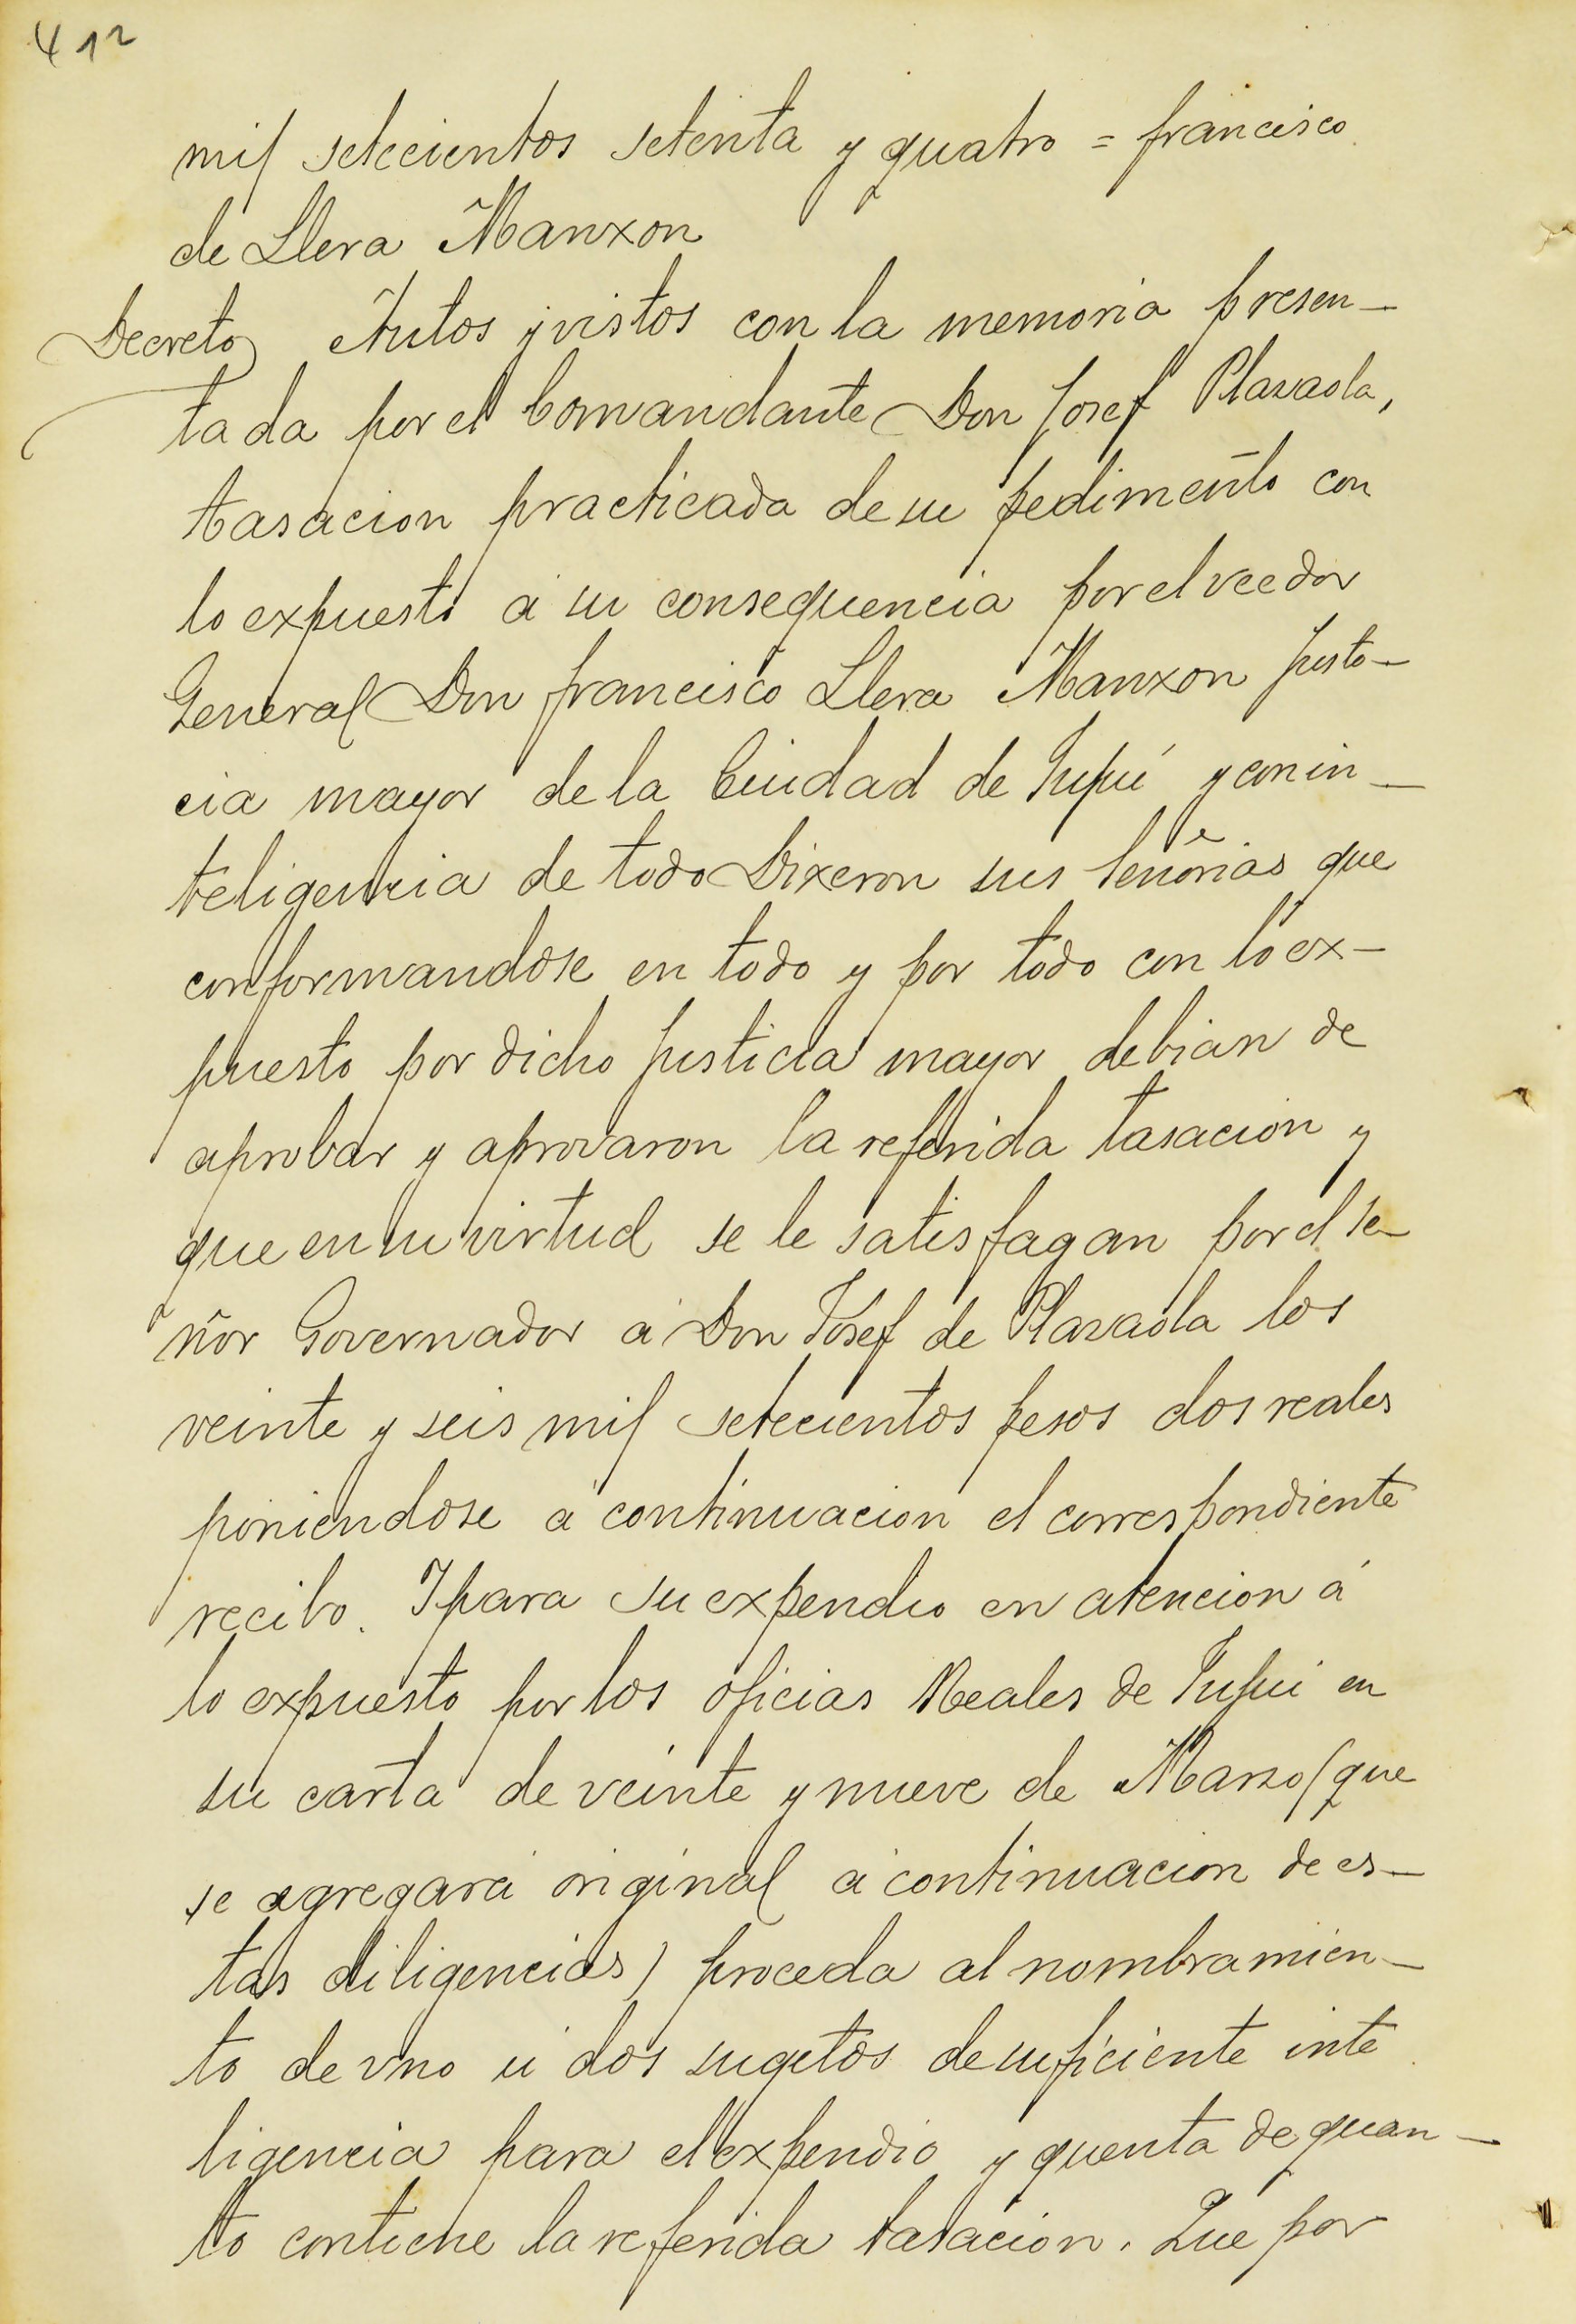 412
mil setecientos setenta y quatro = francisco
de Llera Manxon
Decreto Autos y vistos con la memoria presen-
tada por el Comandante Don Josef Plazaola,
tasacion practicada de su pedimento con
lo expuesto á su consequencia por el veedor
General Don francisco Llera Manxon Justi-
cia mayor de la Ciudad de Jujuí y con in-
teligencia de todo Dixeron sus señorias que
conformandose en todo y por todo con lo ex-
puesto por dicho Justicia mayor debian de
aprobar y aprovaron la referida tasacion y
que en su virtud se le satisfagan por el se-
ñor Governador á Don Josef de Plazaola los
veinte y seis mil setecientos pesos dos reales
poniendose á continuacion el correspondiente
recibo. Y para su expendio en atencion á
lo expuesto por los oficias Reales de Jujui en
su carta de veinte y nueve de Marzo (que
se agregará original á continuacion de es-
tas diligencias) proceda al nombramien-
to de vno ú dos sugetos de suficiente inte
ligencia para el expendio y quenta de quan-
to contiene la referida tasacion. Que por